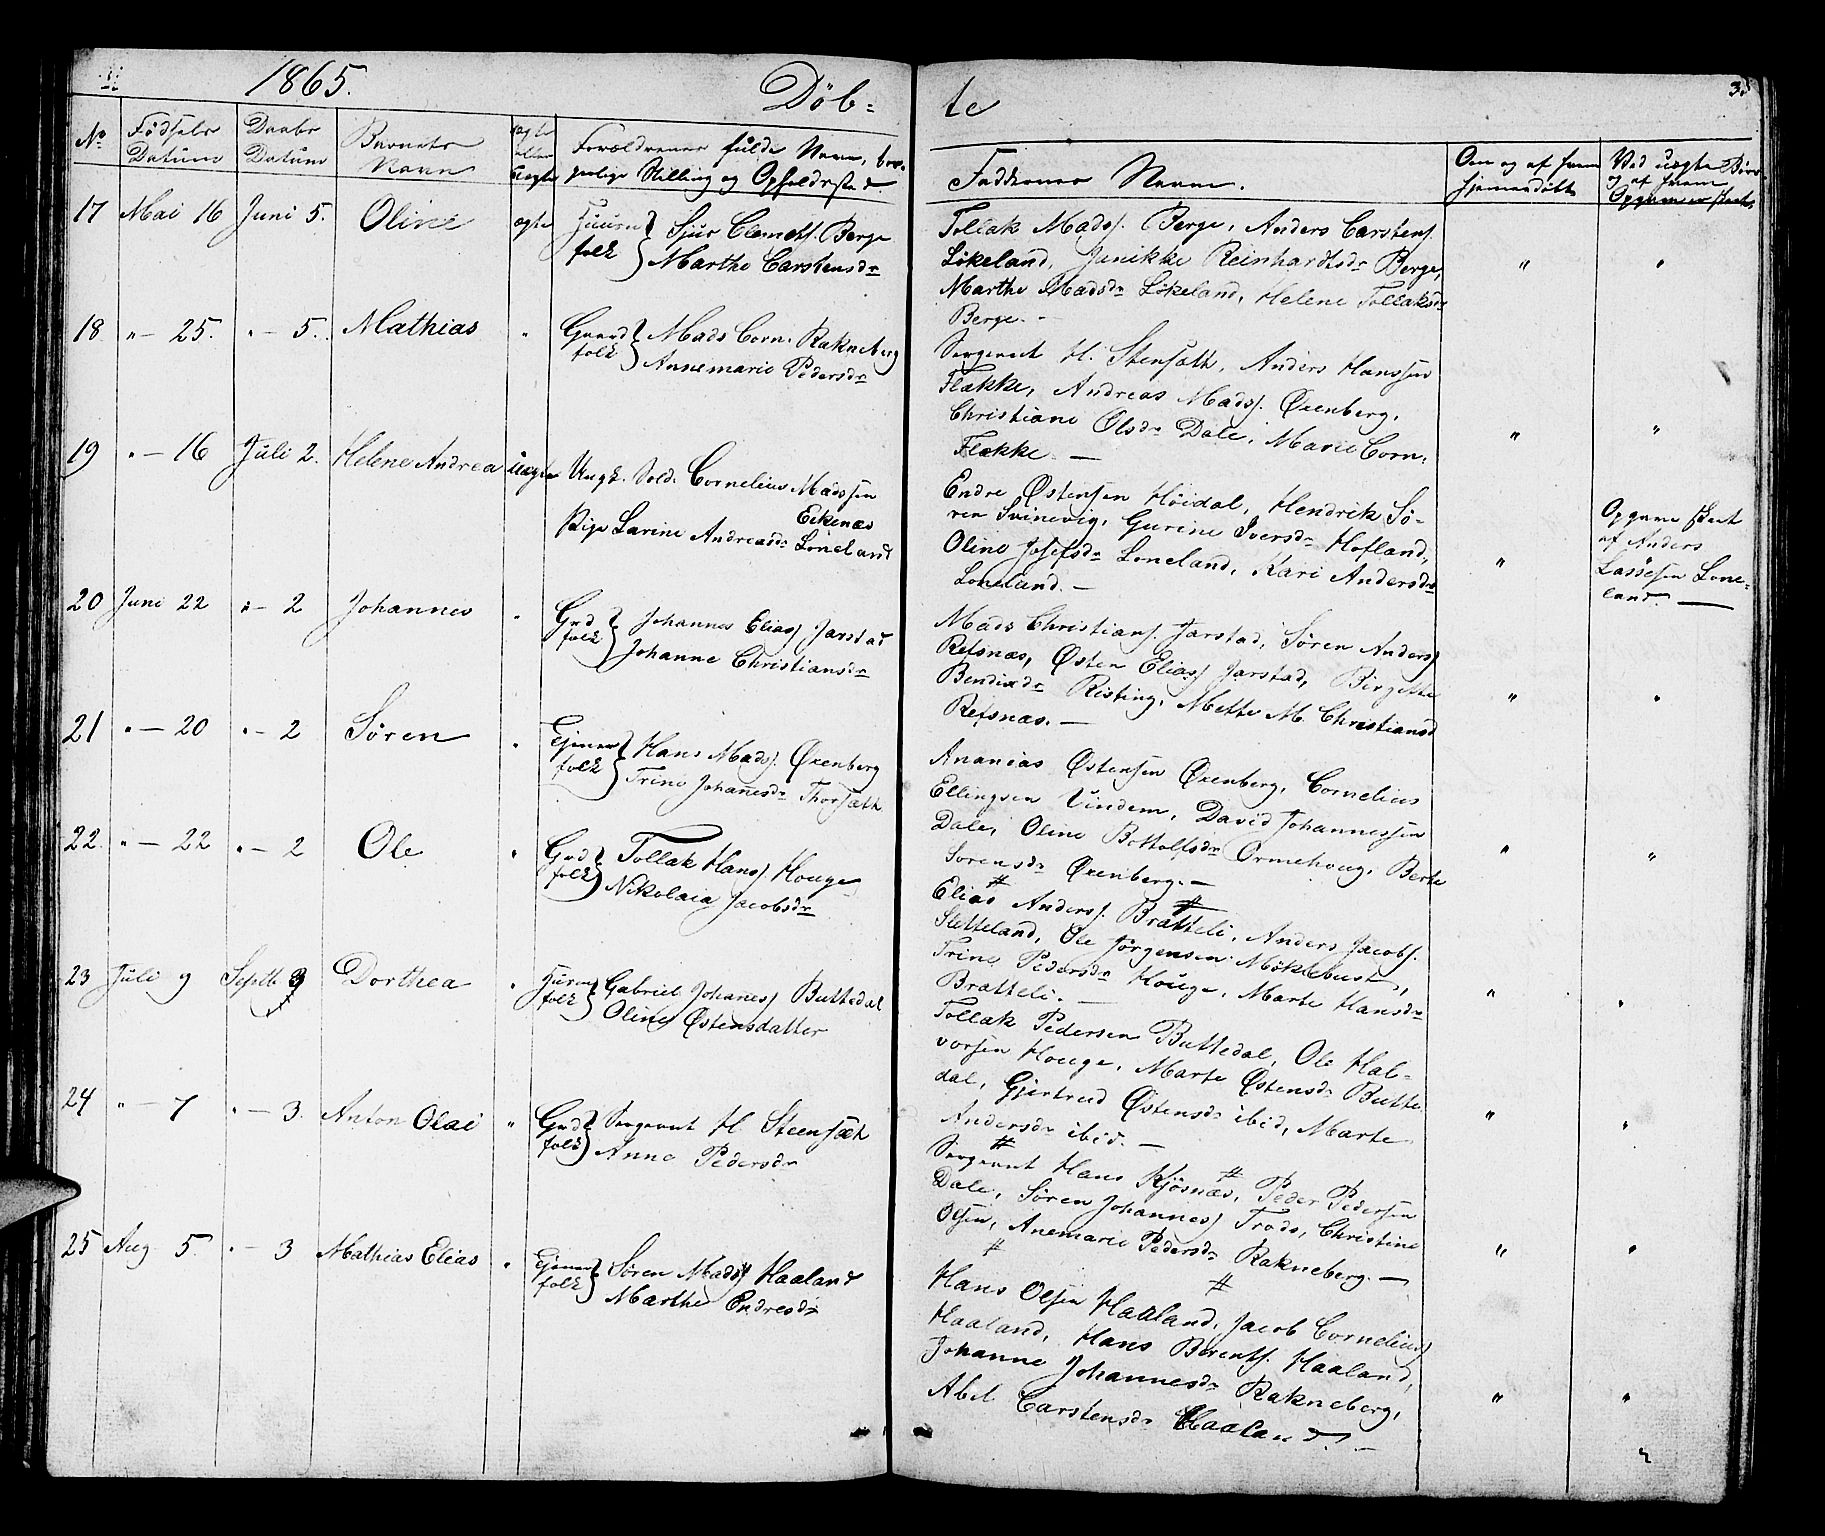 1865.
Døb-
te
35
No
Fødsels
Datum
Daabs
Datum
Barnets
Navn
ægte
eller
uægte
Forældrenes fulde Navn, bor-
gerlige Stilling og Opholdssted
Faddernes Navne.
Om og af hvem
hjemmedøbt
Ved uægte Børn
og af hvem
Opgivelsen skeet
17 Mai 16 Juni 5. Oline ægte Huusm folk Sjur Clemets. Berge
Marthe Carstensdr
Tollak Madss. Berge, Anders Carstens.
Løkeland, Janikke Reinhardtsdr Berge,
Marthe Madsdr Løkeland, Helene Tollaksdr
Berge. — " "
18 " — 25. " — 5. Mathias " Gaard folk Mads Corn. Rakneberg
Annemarie Pedersdr
Sergeant H. Stensæth, Anders Hanssen
Flække, Andreas Madss. Øxenberg,
Christiane Olsdr Dale, Marie Corn.
Flekke. — " "
19 " — 16 Juli 2. Helene Andrea uægte Ungk. Sold. Cornelius Madssen
Eikenæs
Pige Larine Andreasdr Loneland
Endre Østensen Høidal, Hendrik Sø-
ren Svinevig, Gurine Iversdr Hofland,
Oline Josefsdr Loneland, Kari Andersdr
Loneland. — "
Opgave skeet
af Anders
Lassesen Lone-
land. —
20 Juni 22 " — 2 Johannes " Grd folk Johannes Eliass Jarstad
Johanne Christiansdr
Mads Christians. Jarstad, Søren Anderss
Refsnæs, Østen Eliass Jarstad, Birgette
Bendixdr Risting, Mette M. Christiansd
Refsnæs. — " "
21 " — 20 " — 2 Søren " Ejener folk Hans Madss. Øxenberg
Trine Johanesdr Thorsæth
Ananias Østensen Øxenberg, Cornelius
Ellingsen Vindem, David Johannessen
Dale, Oline Bottolfsdr Ormehoug, Berte
Sørensdr Øxenberg. — " "
22. " — 22 " — 2 Ole " Grd folk Tollak Hanss. Houge
Nikolaia Jacobsdr
Elias Anderss. Bratteli, Anders Jacobs.
Sletteland, Ole Jørgensen Møklebust,
Trine Pedersdr Houge, Marte Hansdr
Bratteli. — " "
23 Juli 9 Septb 3 Dorthea " Husm folk Gabriel Johaness Buttedal
Oline Østensdatter
Tollak Pedersen Buttedal, Ole Hal-
vorsen Houge, Marte Østensdr Butte
dal, Gjertrud Østensdr ibid, Marte
Andersdr ibid. — " "
24 " — 7 " — 3. Anton Olai " Grd folk Sergeant H. Steensæth
Anne Pedersdr
Sergeant Hans Kjøsnæs, Peder Pedersen
Dale, Søren Johanness Trods, Christine
Olsen, Anemarie Pedersdr Rakneberg. — " "
25 Aug 5. " — 3 Mathias Elias " Ejener folk Søren Madss Haaland
Marthe Endresdr
Hans Olsen Haaland, Jacob Corneliuss
Haaland, Hans Berents. Haaland,
Johanne Johannesdr Rakneberg,
Abel Carstensdr Haaland. — " "